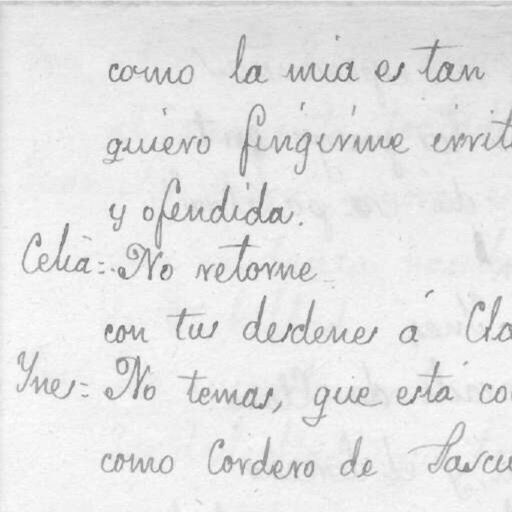 como la mia es tan
quiero fingirme irrit
y ofendida.
Celia=. No retorne
con tus desdenes á Cla
Ynes= No temas, que está co
como Cordero de Pascu